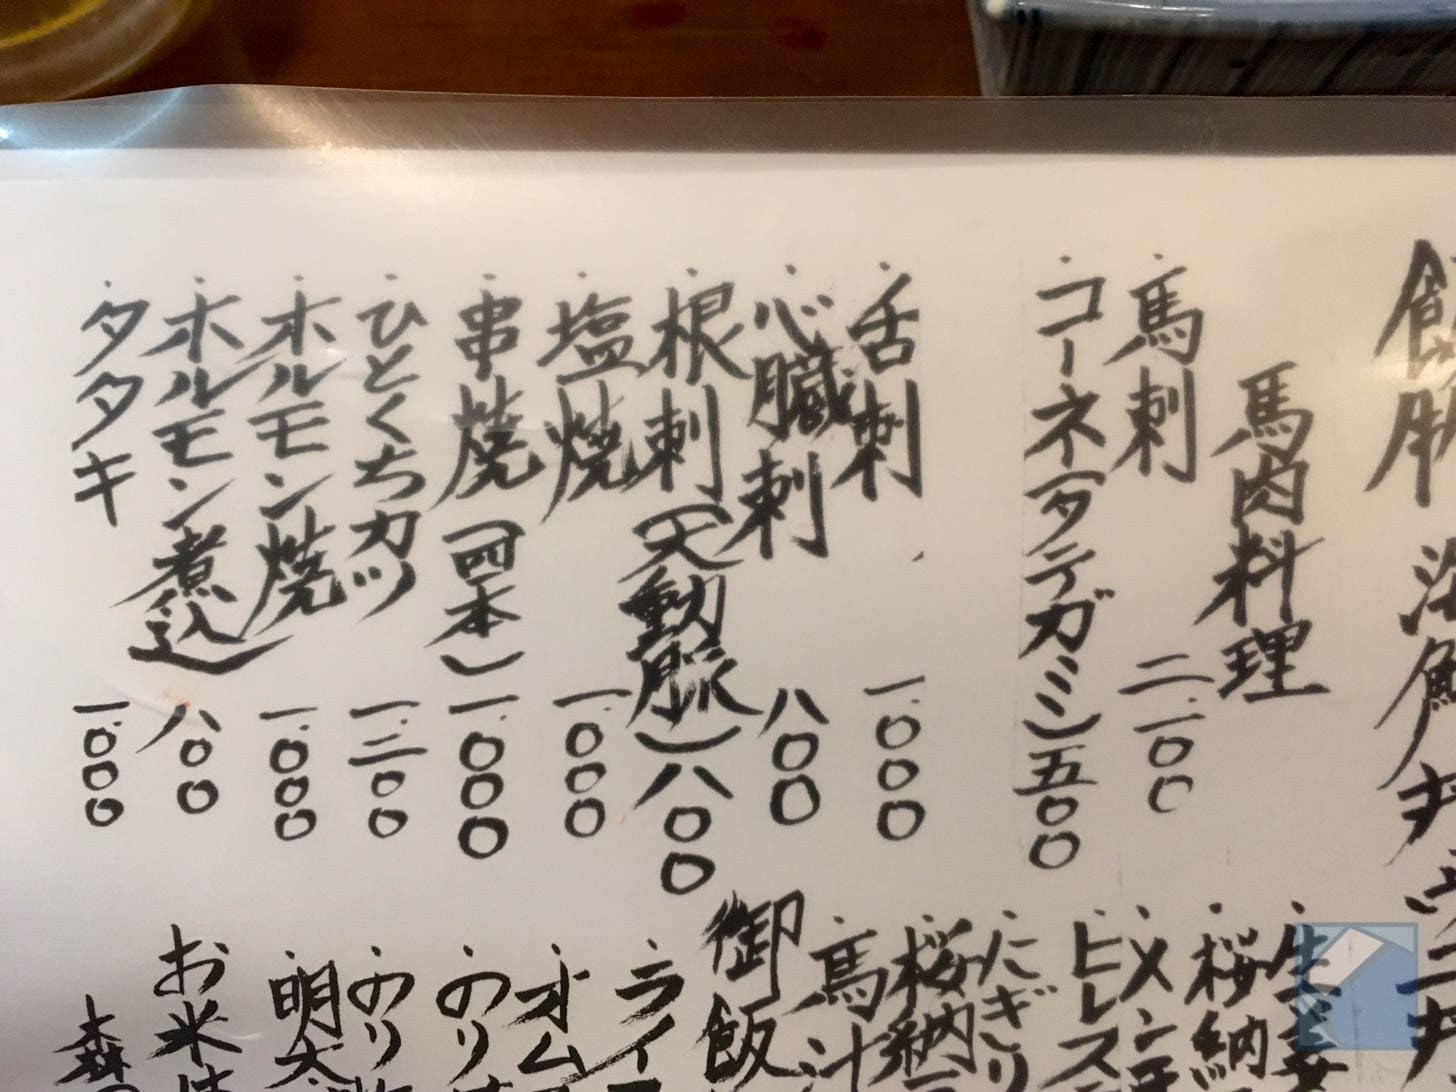 馬肉料理
・馬刺 二.一〇〇
・コーネ(タテガミ)五〇〇
・舌刺 一.〇〇〇
・心臓刺 八〇〇
・根刺(大動脈)八〇〇
・塩焼 一.〇〇〇
・串焼(四本)一.〇〇〇
・ひとくちカツ 一.二〇〇
・ホルモン焼 一.〇〇〇
・ホルモン煮込 八〇〇
・タタキ 一.〇〇〇
・桜納
・メン
・ヒレス
・にぎり
・桜納
・馬汁
御飯
・ライ
・オム
・のり
・のり
・明太
お米